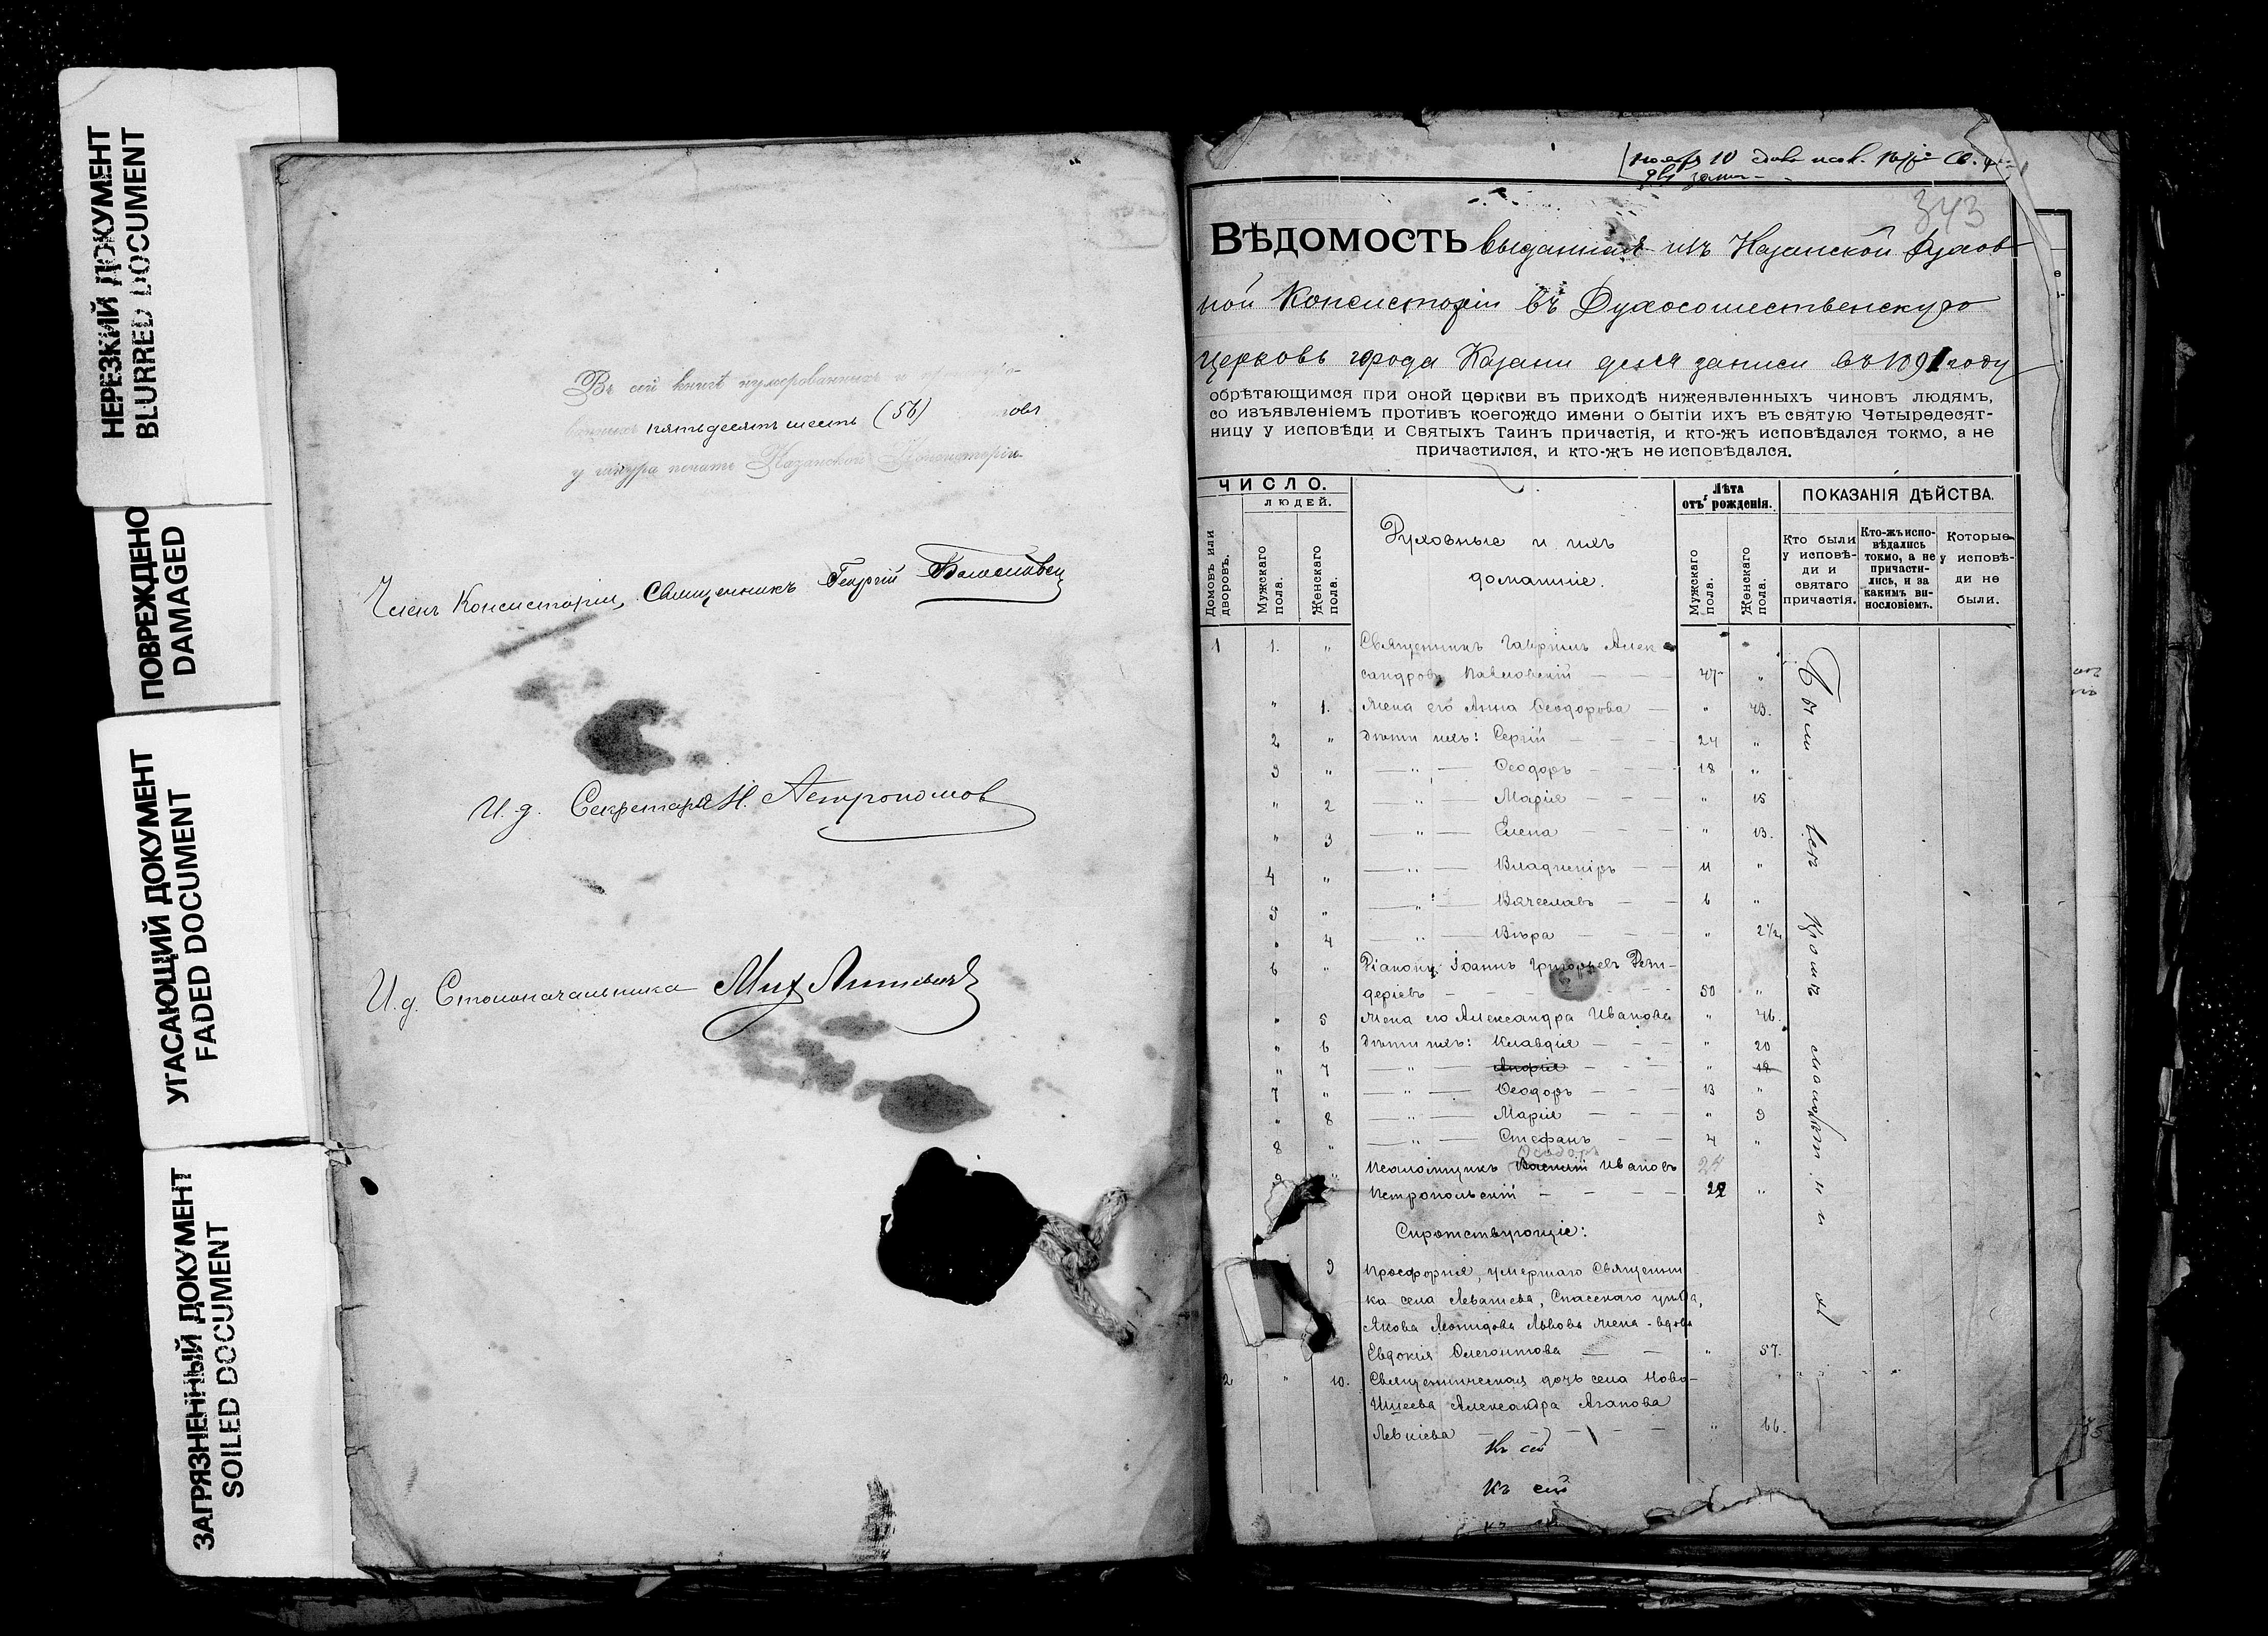 НЕРЕЗКИЙ ДОКУМЕНТ
BLURRED DOCUMENT
ПОВРЕЖДЕНО
DAMAGED
УГАСАЮЩИЙ ДОКУМЕНТ
FADED DOCUMENT
ЗАГРЯЗНЕННЫЙ ДОКУМЕНТ
SOILED DOCUMENT
Въ сей книгѣ нумерованныхъ и
пятьдесятъ шесть (56)
у шнура печать Казанской Консисторіи
Членъ Консисторіи, Священникъ Георгій
И. д. Секретаря Н. Астрономов
И. д. Столоначальника Мих
343
ВѢДОМОСТЬ выданная изъ Казанской Духов
ной Консисторіи въ Духосошественскую
церковь города Казани для записи въ 1891 году
обрѣтающимся при оной церкви въ приходѣ нижеявленныхъ чиновъ людямъ,
со изъявленіемъ противъ коегождо имени о бытіи ихъ въ святую Четыредесят-
ницу у исповѣди и Святыхъ Таинъ причастія, и кто-жъ исповѣдался токмо, а не
причастился, и кто-жъ не исповѣдался.
ЧИСЛО.
ЛЮДЕЙ.
Домовъ или дворовъ.
Мужскаго пола.
Женскаго пола.
Духовные и ихъ
домашніе.
Лѣта отъ рожденія.
Мужскаго пола.
Женскаго пола.
ПОКАЗАНІЯ ДѢЙСТВА.
Кто были у исповѣди и святаго причастія.
Кто-жъ исповѣдались токмо, а не причастились, и за какимъ винословіемъ.
Которые у исповѣди не были.
1 1. " Священникъ Гавріилъ Алек
сандровъ Павловскій — — 47 "
" 1. Жена его Анна Ѳеодорова — " 43.
2 " Дѣти ихъ: Сергій — — — 24 "
3 " — " — Ѳеодоръ — — — 18 "
" 2 " — Марія — — — " 15
" 3 — " — Елена — — — " 13.
4 " — " — Владиміръ — — 11 "
5 " — " — Вячеславъ — — 6 "
" 4 — " — Вѣра — — — " 2 1/2
6 " Діаконъ Іоаннъ Григорьевъ Дези-
деріевъ — — — — 50 "
" 5 Жена его Александра Иванова " 46.
" 6 Дѣти ихъ: Клавдія — — — " 20
" 7 — " — — — — " 18
7 " — " — Ѳеодоръ — — — 13 "
" 8 — " — Марія — — — " 9
8 " — " — Стефанъ — — 4 "
Ѳеодоръ
9 " Псаломщикъ Василій Ивановъ 24
Петропольскій — — — — 22 "
Сиротствующіе:
9 Просфорня, умершаго Священни
ка села Левашева, Спасскаго уѣзда,
Якова Леонидова Львова жена-вдова
Евдокія — — " 57.
2 " 10. Священническая дочь села Ново-
Александра Агапова
Левкіева — — — — " 66.
Къ сей
Къ сей
Были всѣ кромѣ